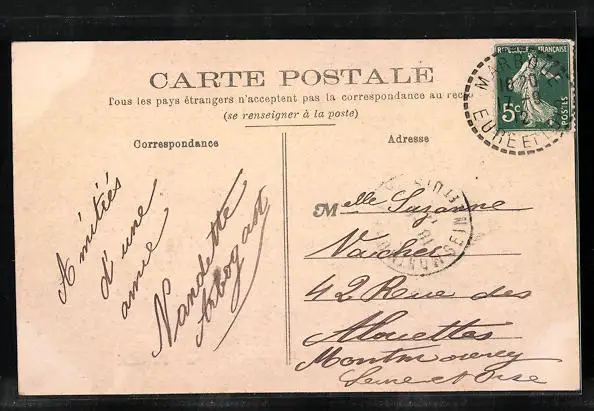 CARTE POSTALE
Tous les pays étrangers n'acceptent pas la correspondance au rec
(se renseigner à la poste)
Correspondance
Adresse
REPUBLIQUE FRANÇAISE
5c
POSTES
EURE ET
SEINE ET OISE
Amitiés
d'une
amie
Nandette
Arbogast
Melle Suzanne
Vacher
42 Rue des
Alouettes
Montmorency
Seine et Oise